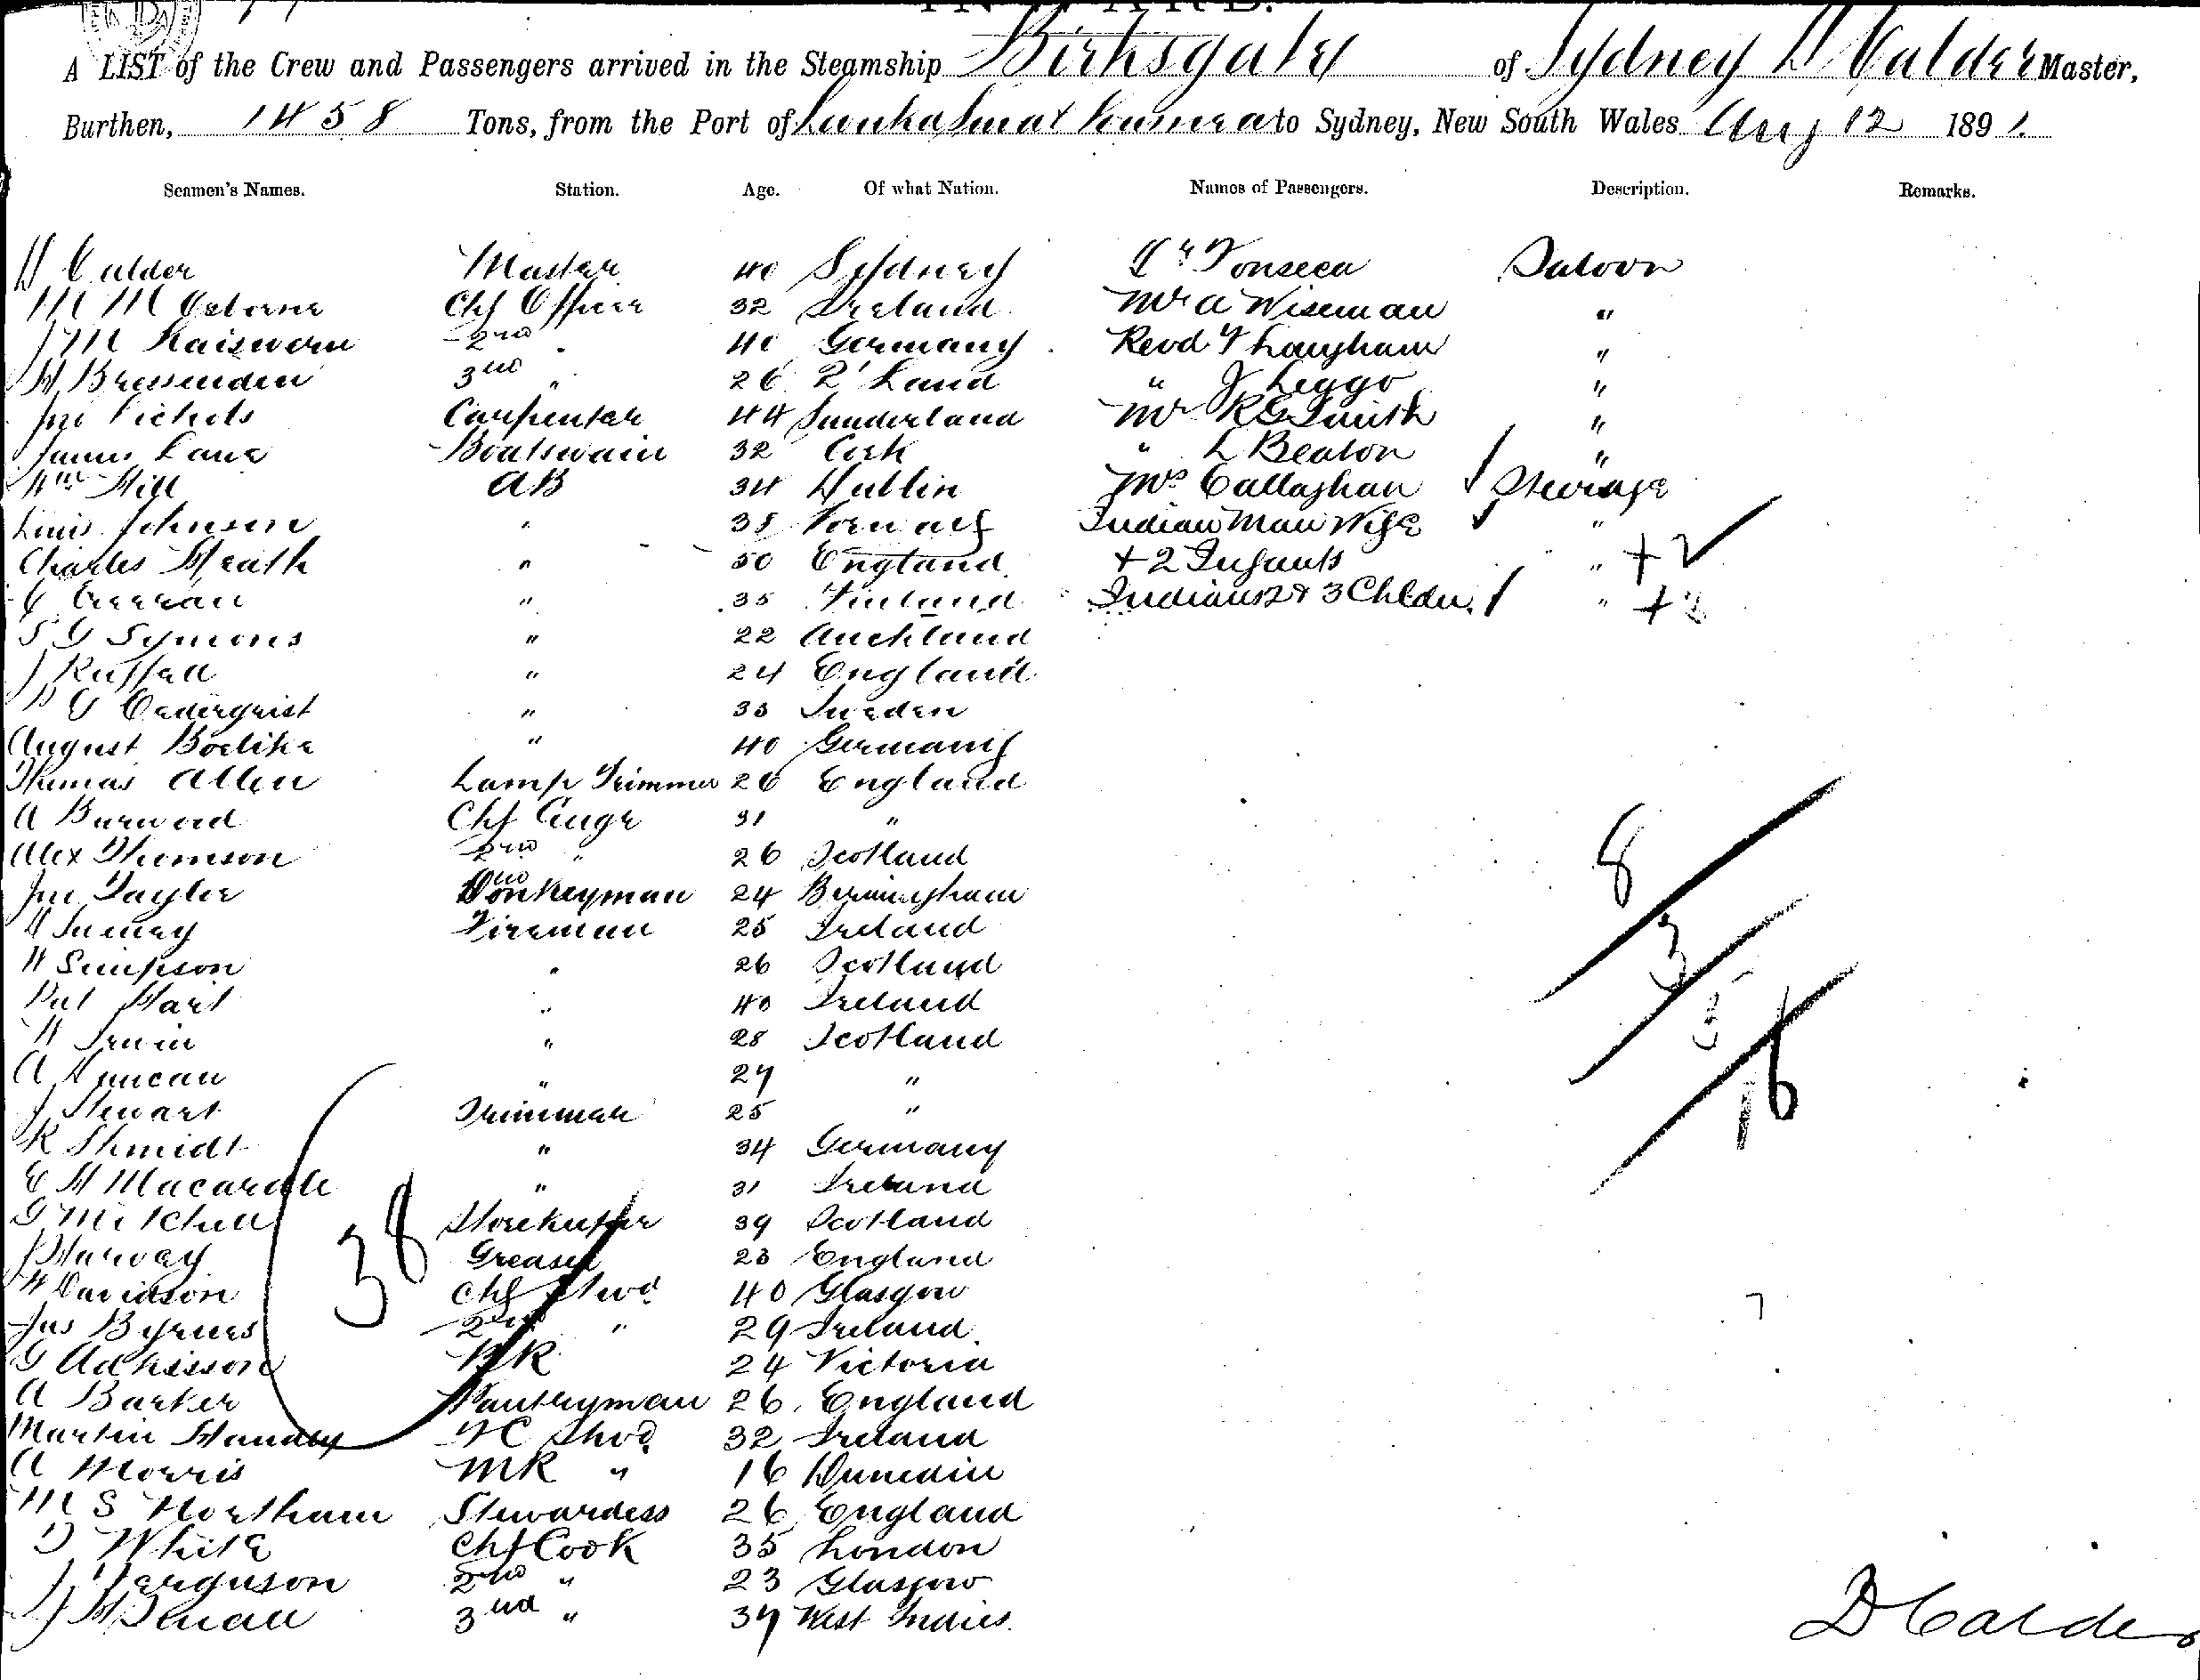 INWARD.
A LIST of the Crew and Passengers arrived in the Steamship Birksgate of Sydney D Calder Master,
Burthen, 1458 Tons, from the Port of to Sydney, New South Wales Aug 12 1891.
Seamen's Names. Station. Age. Of what Nation. Names of Passengers. Description. Remarks.
D Calder Master 40 Sydney Fonseca Saloon
M M Osborne Chf Officer 32 Ireland Mr A Wiseman "
J M 2nd " 40 Germany Revd F Langham "
H Bressenden 3rd " 26 Q'Land " J Leggo "
Jno Nichols Carpenter 44 Sunderland Mr R G Smith "
James Lane Boatswain 32 Cork " L Beaton "
Wm Hill AB 34 Dublin Mrs Callaghan Steerage
Louis Johnson " 38 Norway Indian Man Wife "
Charles Heath " 50 England + 2 Infants " + 2
" 35 Finland Indians 2 & 3 Chldn. " + 2
S G Symons " 22 Auckland
J Russell " 24 England
P G Cederquist " 33 Sweden
August Boelike " 40 Germany
Thomas Allen Lamp Trimmer 26 England
A Burwood Chf Engr 31 "
Alex Thomson 2nd " 26 Scotland
Jno Taylor Donkeyman 24 Birmingham
Fireman 25 Ireland
W Simpson " 26 Scotland
Pat Hart " 40 Ireland
W Irwin " 28 Scotland
A Duncan " 27 "
J Stewart Trimmer 25 "
R Shmidt " 34 Germany
E H Macardle " 31 Ireland
G Mitchell Storekeeper 39 Scotland
J Harvey Greaser 23 England
W Davidson Chf Stwd 40 Glasgow
Jas Byrnes 2nd " 29 Ireland
G Adkisson BR 24 Victoria
A Barker Pantryman 26 England
Martin Handley FC Stwd 32 Ireland
A Morris MR " 16 Dunedin
M S Northam Stewardess 26 England
D White Chf Cook 35 London
J Ferguson 2nd " 23 Glasgow
3rd " 37 West Indies.
8
3
5
16
38
D Calder